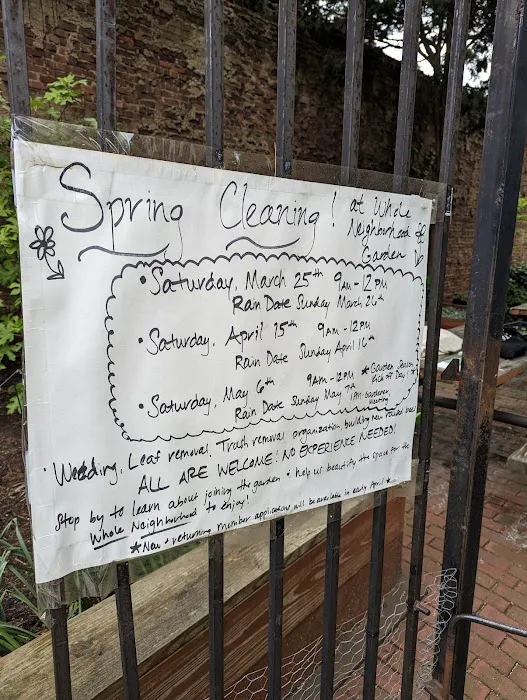 Spring Cleaning! at Whole
Neighborhood
Garden
• Saturday, March 25th 9AM-12PM
Rain Date Sunday March 26th
• Saturday, April 15th 9AM-12PM
Rain Date Sunday April 16th
• Saturday, May 6th 9AM-12PM * Garden Season
Kick off Day! *
Rain Date Sunday May 7th 1PM-Gardener
Meeting
Weeding, Leaf removal, Trash removal, organization, building new raised beds
ALL ARE WELCOME! NO EXPERIENCE NEEDED!
Stop by to learn about joining the garden + help us beautify the space for the
Whole Neighborhood to enjoy!
* New + returning member applications will be available in early April *